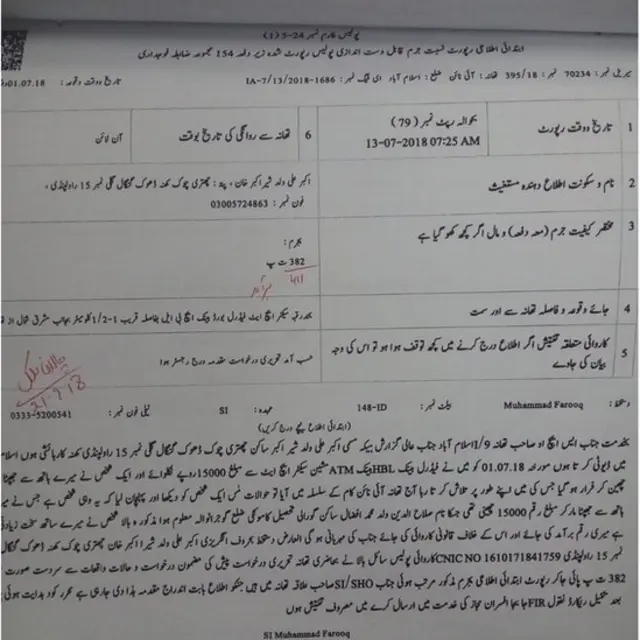 پولیس فارم نمبر 24-5 (1)
ابتدائی اطلاعی رپورٹ نسبت جرم قابل دست اندازی پولیس رپورٹ شدہ زیر دفعہ 154 مجموعہ ضابطہ فوجداری
سیریل نمبر : 70234 نمبر : 395/18 تھانہ : آئی نائن ضلع : اسلام آباد ای ٹیگ نمبر : IA-7/13/2018-1686 تاریخ و وقت وقوعہ : 01.07.18
1 تاریخ و وقت رپورٹ بحوالہ رپٹ نمبر (79) 13-07-2018 07:25 AM 6 تھانہ سے روانگی کی تاریخ بوقت آن لائن
2 نام و سکونت اطلاع دہندہ مستغیث اکبر علی ولد شیر اکبر خان ، پتہ : چھتری چوک کھنہ ڈھوک گنگال گلی نمبر 15 راولپنڈی ،
فون نمبر : 03005724863
3 مختصر کیفیت جرم (معہ دفعہ) و مال اگر کچھ کھو گیا ہے جرم :
382 ت پ
411
برآمد
4 جائے وقوعہ و فاصلہ تھانہ سے اور سمت حد رقبہ سیکٹر ایچ ایٹ فیڈرل بورڈ بینک ایچ بی ایل بفاصلہ قریب 1-1/2 کلومیٹر بجانب مشرق شمال از
5 کاروائی متعلقہ تفتیش اگر اطلاع درج کرنے میں کچھ توقف ہوا ہو تو اس کی وجہ بیان کی جاوے حسب آمد تحریری درخواست مقدمہ درج رجسٹر ہوا
دستخط : Muhammad Farooq بیلٹ نمبر : 148-ID عہدہ : SI ٹیلی فون نمبر : 0333-5200541
(ابتدائی اطلاع نیچے درج کریں)
بخدمت جناب ایس ایچ او صاحب تھانہ I/9 اسلام آباد جناب عالی گزارش ہیکہ مسمی اکبر علی ولد شیر اکبر ساکن چھتری چوک ڈھوک گنگال گلی نمبر 15 راولپنڈی کھنہ کا رہائشی ہوں اسلام
میں ڈیوٹی کرتا ہوں مورخہ 01.07.18 کو میں نے فیڈرل بینک HBL بینک ATM مشین سیکٹر ایچ ایٹ سے مبلغ 15000 روپے نکلوائے اور ایک شخص نے میرے ہاتھ سے جھپٹا
چھین کر فرار ہو گیا جس کی میں اپنے طور پر تلاش کرتا رہا آج تھانہ آئی نائن کام کے سلسلہ میں آیا تو حوالات میں ایک شخص کو دیکھا اور پہچان لیا کہ یہ وہی شخص ہے جس نے میرے
ہاتھ سے جھپٹا مار کر مبلغ رقم 15000 چھینی تھی جسکا نام صلاح الدین ولد محمد افضال ساکن گورالی تحصیل کامونکی ضلع گوجرانوالہ معلوم ہوا مذکورہ بالا شخص نے میرے ساتھ سخت زیادتی
ہے میری رقم برآمد کی جائے اور اس کے خلاف قانونی کاروائی کی جائے جناب کی مہربانی ہو گی العارض دستخط بحروف انگریزی اکبر علی ولد شیر اکبر خان چھتری چوک کھنہ ڈھوک گنگال گلی
نمبر 15 راولپنڈی CNIC NO 1610171841759 کاروائی پولیس سائل بالا نے بحاضری تھانہ تحریری درخواست پیش کی مضمون درخواست و حالات واقعات سے سردست صورت
382 ت پ پائی جا کر رپورٹ ابتدائی اطلاعی بجرم مذکور مرتب ہوئی جناب SI/SHO صاحب علاقہ تھانہ میں ہیں جنکو اطلاع بابت اندراج مقدمہ ہذا دی جا رہی ہے محرر کو ہدایت ہوئی
بعد تکمیل ریکارڈ نقول FIR جابجا افسران مجاز کی خدمت میں ارسال کرے میں مصروف تفتیش ہوں
SI Muhammad Farooq